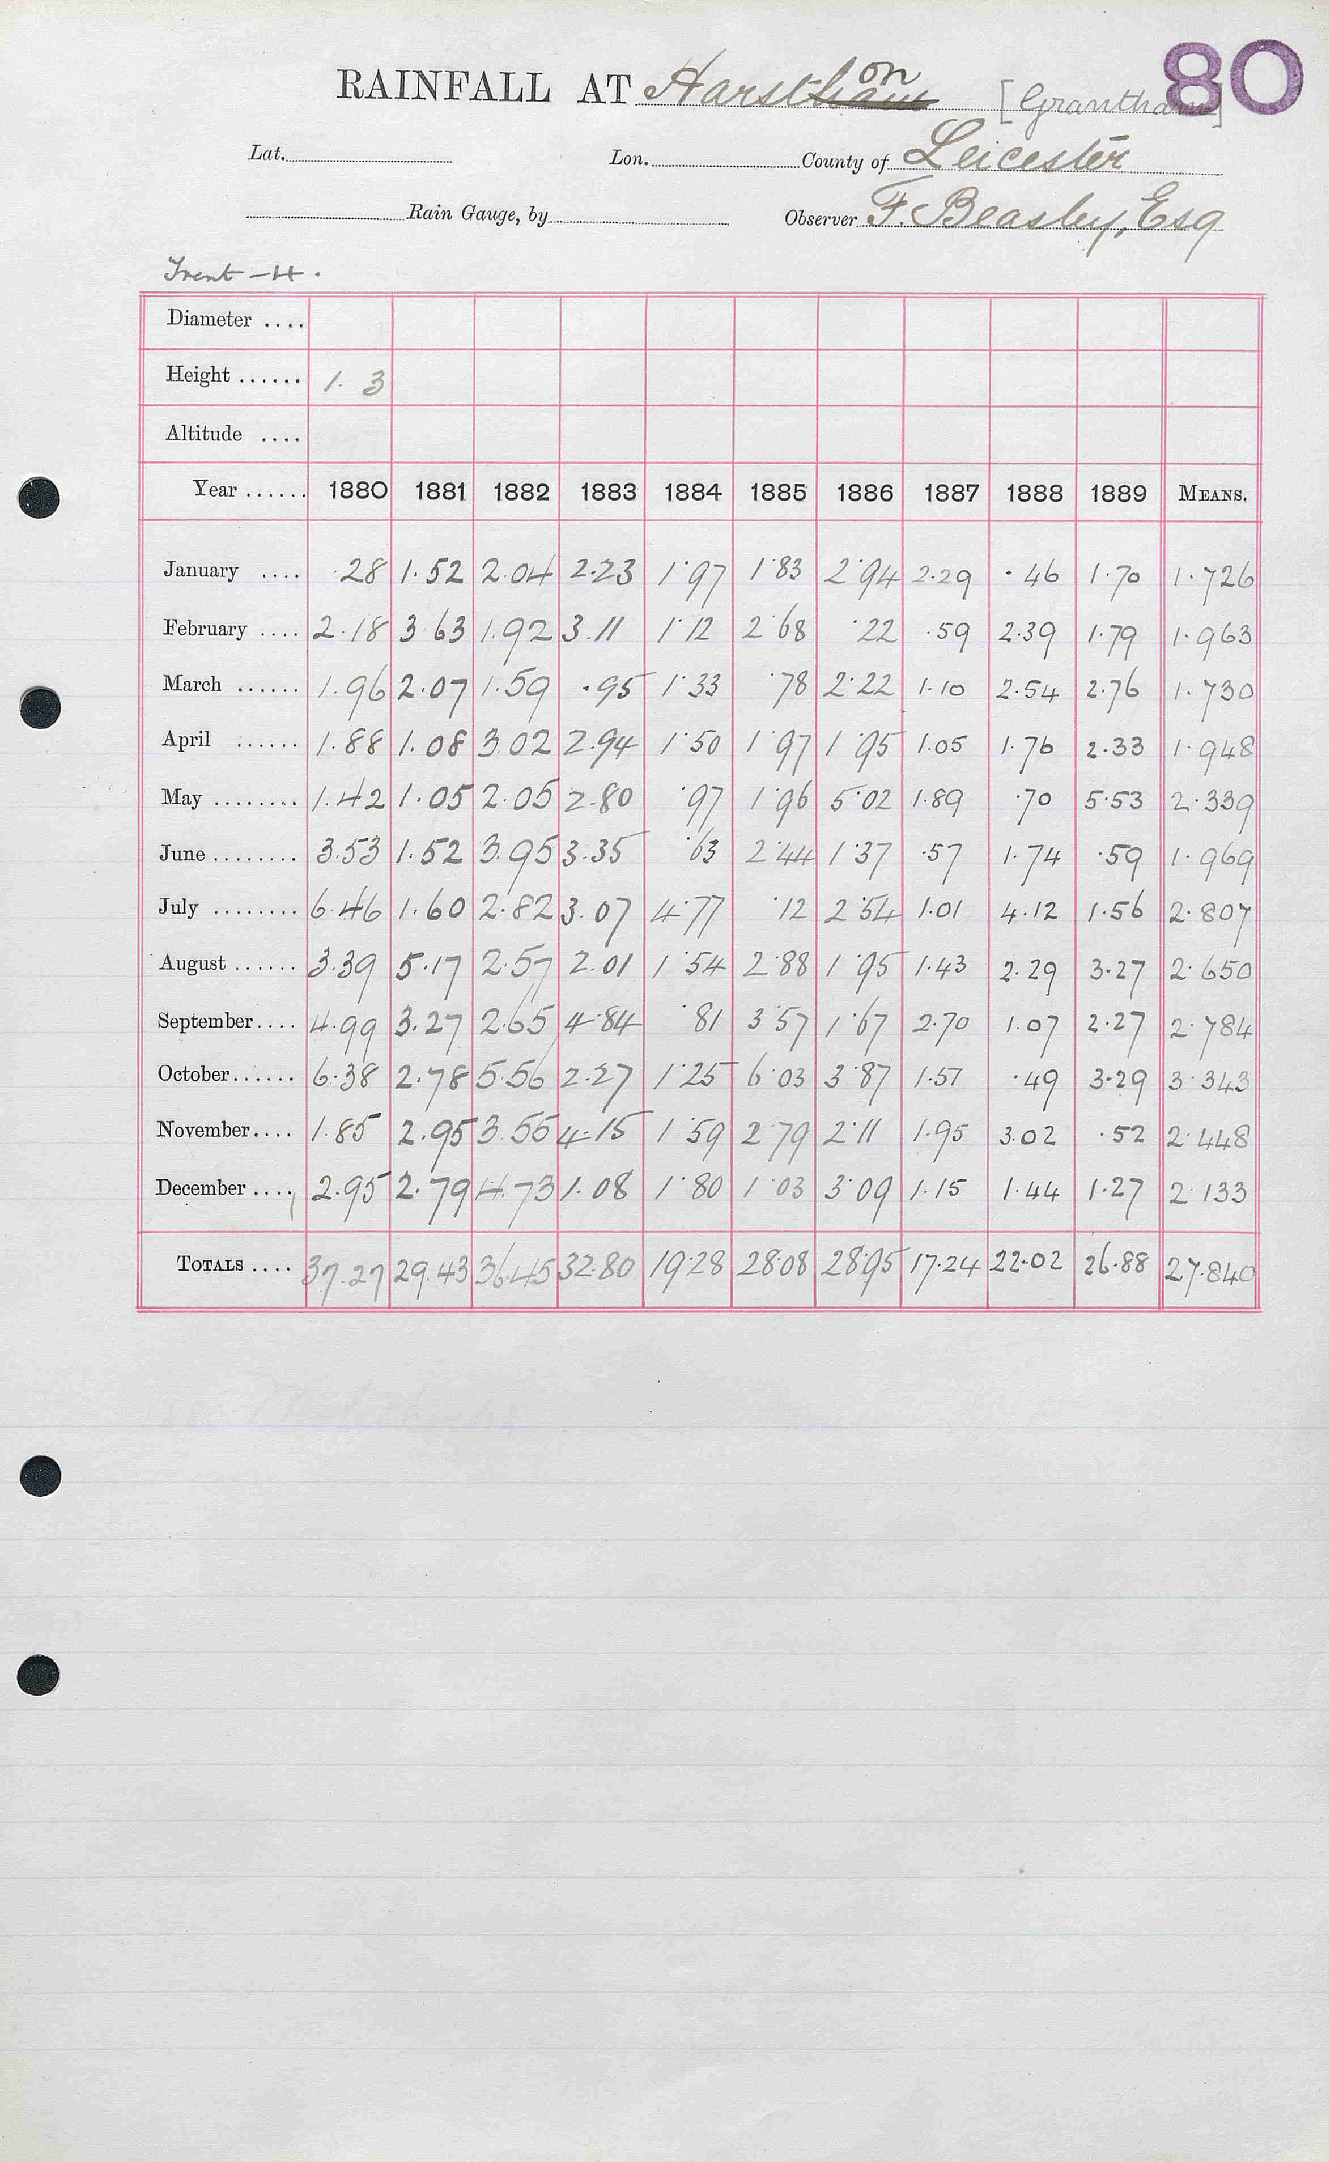 80
RAINFALL AT Harston [Grantham]
Lat. Lon. County of Leicester
Rain Gauge, by Observer F. Beasley, Esq
Trent - 4.
Diameter ....
Height ...... 1. 3
Altitude ....
Year ...... 1880 1881 1882 1883 1884 1885 1886 1887 1888 1889 MEANS.
January .... .28 1.52 2.04 2.23 1.97 1.83 2.94 2.29 .46 1.70 1.726
February .... 2.18 3.63 1.92 3.11 1.12 2.68 .22 .59 2.39 1.79 1.963
March ...... 1.96 2.07 1.59 .95 1.33 .78 2.22 1.10 2.54 2.76 1.730
April ...... 1.88 1.08 3.02 2.94 1.50 1.97 1.95 1.05 1.76 2.33 1.948
May ........ 1.42 1.05 2.05 2.80 .97 1.96 5.02 1.89 .70 5.53 2.339
June ........ 3.53 1.52 3.95 3.35 .63 2.44 1.37 .57 1.74 .59 1.969
July ........ 6.46 1.60 2.82 3.07 4.77 .12 2.54 1.01 4.12 1.56 2.807
August ...... 3.39 5.17 2.57 2.01 1.54 2.88 1.95 1.43 2.29 3.27 2.650
September.... 4.99 3.27 2.65 4.84 .81 3.57 1.67 2.70 1.07 2.27 2.784
October...... 6.38 2.78 5.56 2.27 1.25 6.03 3.87 1.57 .49 3.29 3.343
November.... 1.85 2.95 3.55 4.15 1.59 2.79 2.11 1.95 3.02 .52 2.448
December .... 2.95 2.79 4.73 1.08 1.80 1.03 3.09 1.15 1.44 1.27 2.133
TOTALS .... 37.27 29.43 36.45 32.80 19.28 28.08 28.95 17.24 22.02 26.88 27.840